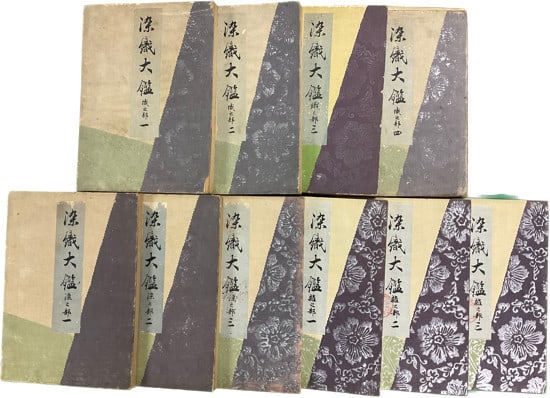 染織大鑑
織之部 一
染織大鑑
織之部 二
染織大鑑
織之部 三
染織大鑑
織之部 四
染織大鑑
染之部 一
染織大鑑
染之部 二
染織大鑑
染之部 三
染織大鑑
雑之部 一
染織大鑑
雑之部 二
染織大鑑
雑之部 三